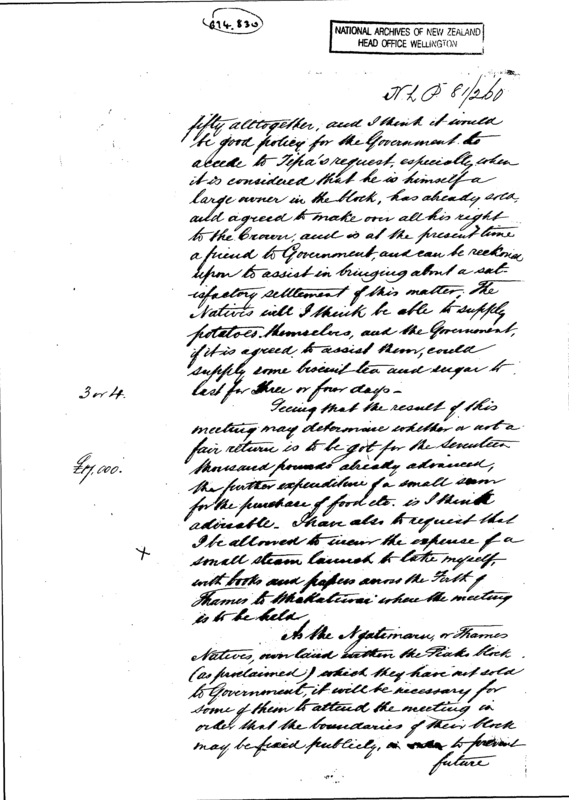 614.830
NATIONAL ARCHIVES OF NEW ZEALAND
HEAD OFFICE WELLINGTON
N L P 81/260
fifty alltogether, and I think it would
be good policy for the Government to
accede to Tepa's request, especially when
it is considered that he is himself a
large owner in the block, has already sold,
and agreed to make over all his right
to the Crown, and is at the present time
a friend to Government, and can be reckoned
upon to assist in bringing about a sat-
isfactory settlement of this matter. The
Natives will I think be able to supply
potatoes themselves, and the Government,
if it is agreed to assist them, could
supply some biscuit tea and sugar to
3 or 4. last for three or four days -
Seeing that the result of this
meeting may determine whether or not a
fair return is to be got for the seventeen
£17,000. thousand pounds already advanced,
the further expenditure of a small sum
for the purchase of food etc. is I think
advisable - I have also to request that
x I be allowed to incur the expense of a
small steam launch to take myself,
with books and papers across the Firth of
Thames to Whakatiwai where the meeting
is to be held.
As the Ngatimaru, or Thames
Natives, own land within the Piako block
(as proclaimed) which they have not sold
to Government, it will be necessary for
some of them to attend the meeting in
order that the boundaries of their block
may be fixed publicly, to prevent
future